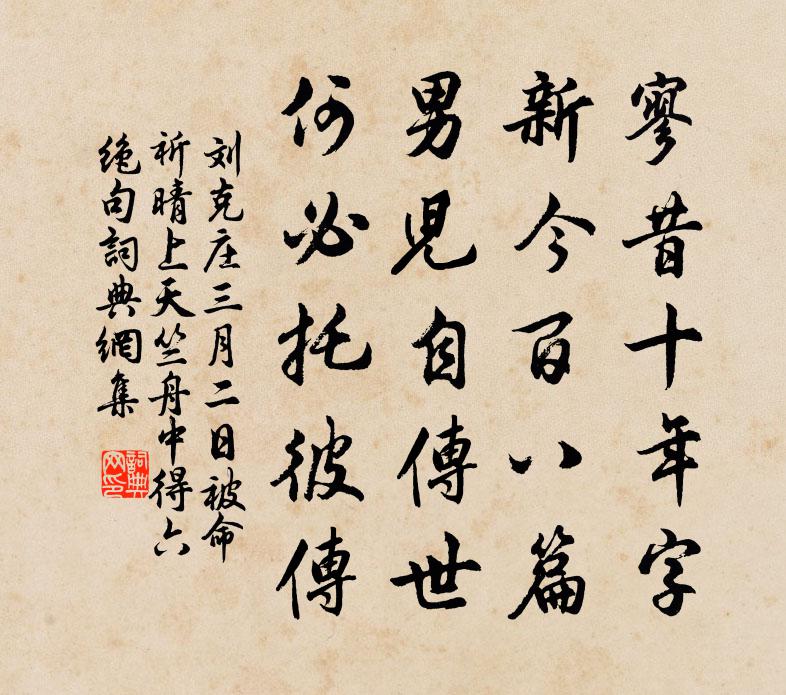 寥昔十年字
新今百八篇
男児自傳世
何必托彼傳
刘克庄三月二日被命
祈晴上天竺舟中得六
绝句詞典網集
詞典網印